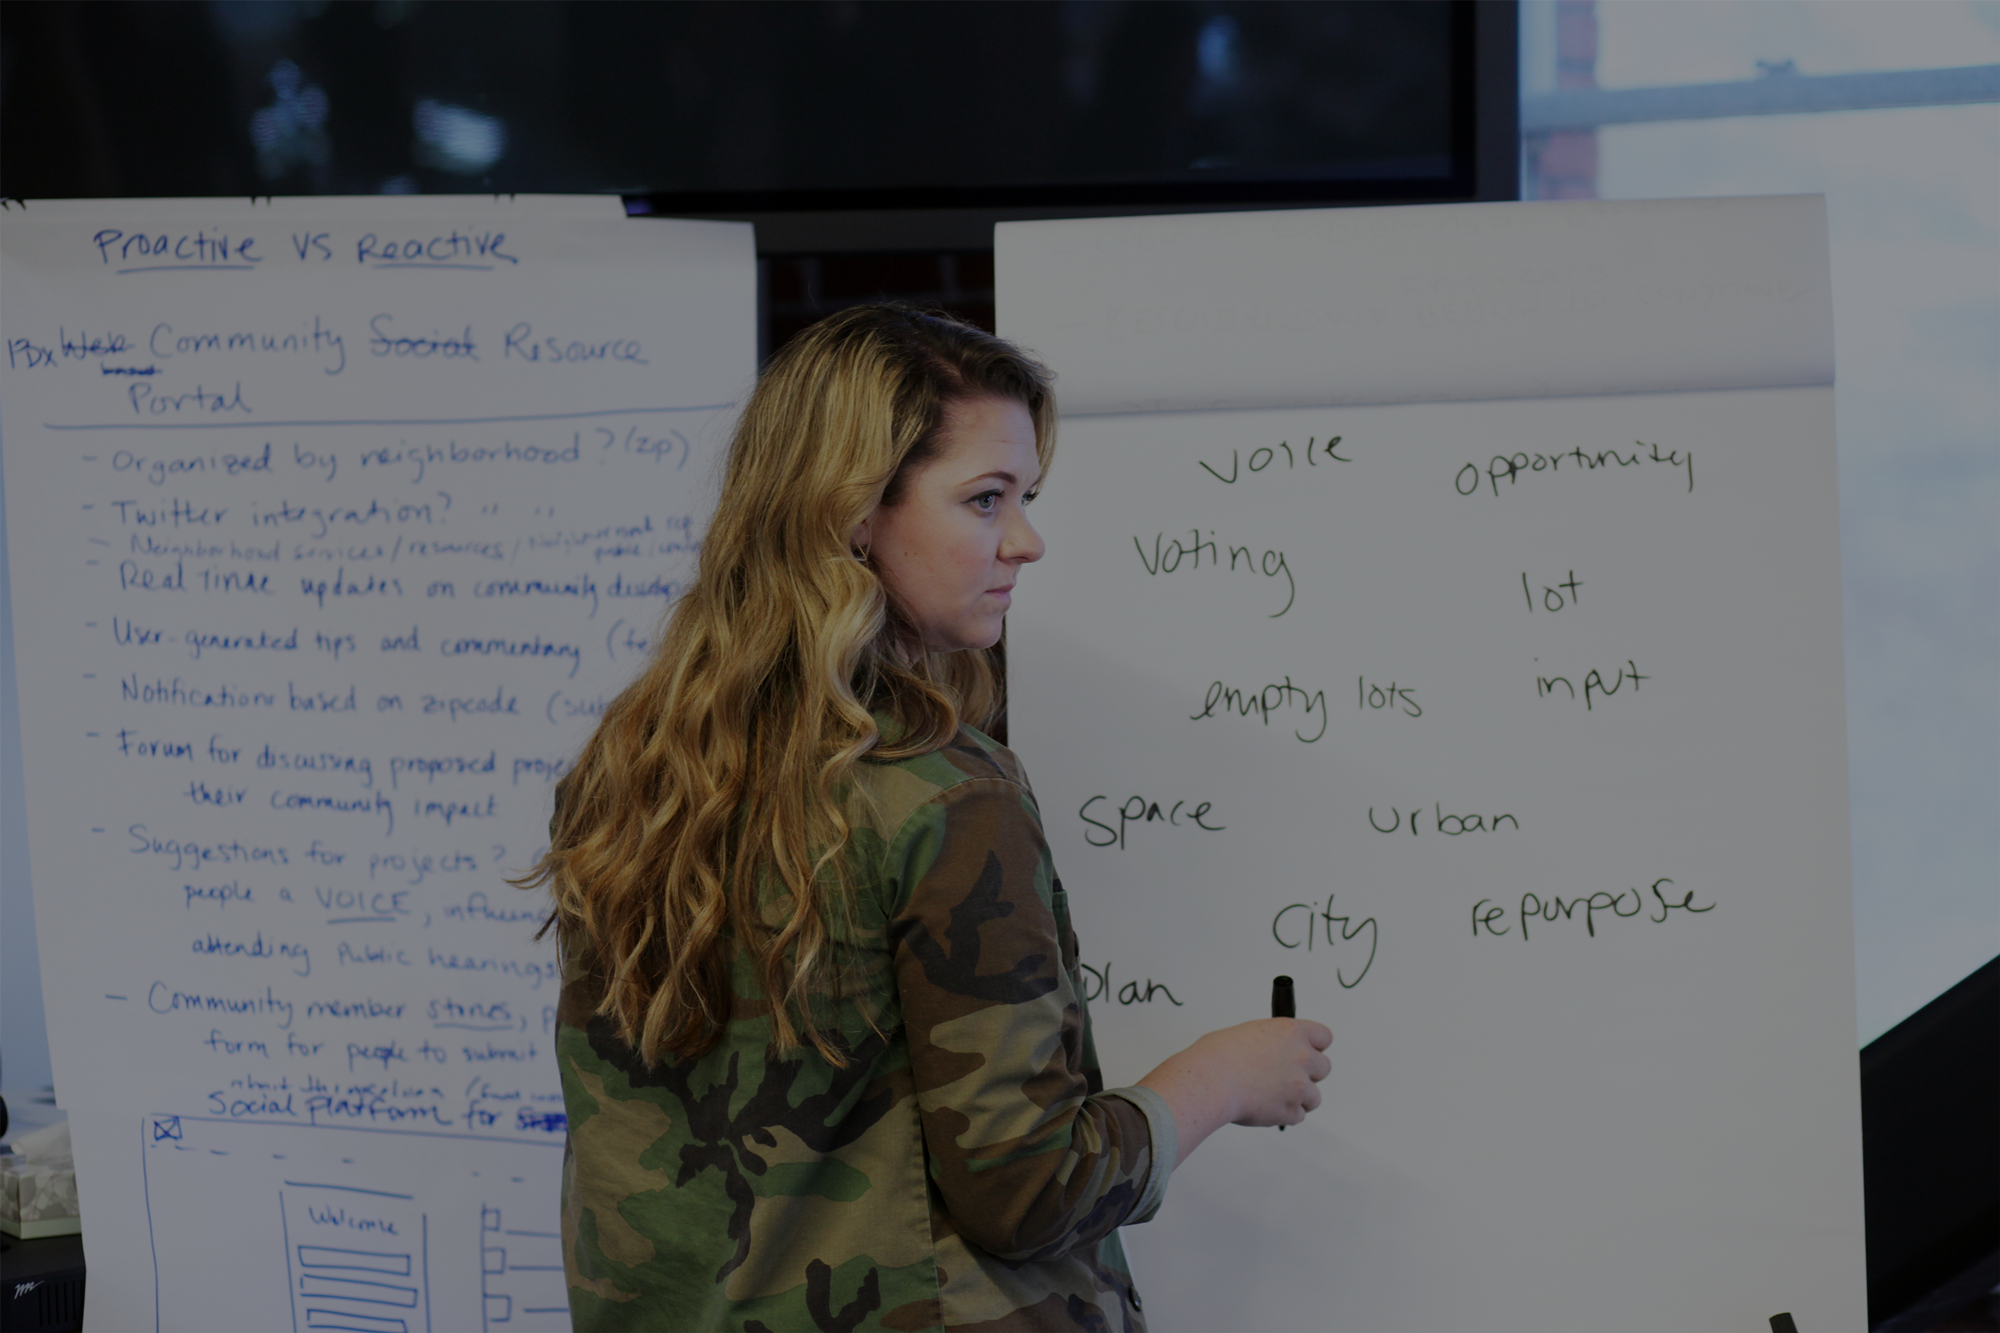 Proactive VS Reactive
PDX Web Community Social Resource
based
Portal
- Organized by neighborhood? (zip)
- Twitter integration? " "
- Neighborhood services/resources/
- Real Time updates on community
- User-generated tips and commentary
- Notifications based on zipcode
- Forum for discussing proposed
their community impact
- Suggestions for projects?
people a VOICE,
attending public hearings
- Community member stories,
form for people to submit
Social platform for
Welcome
voice opportunity
Voting
lot
empty lots input
Space urban
City repurpose
plan